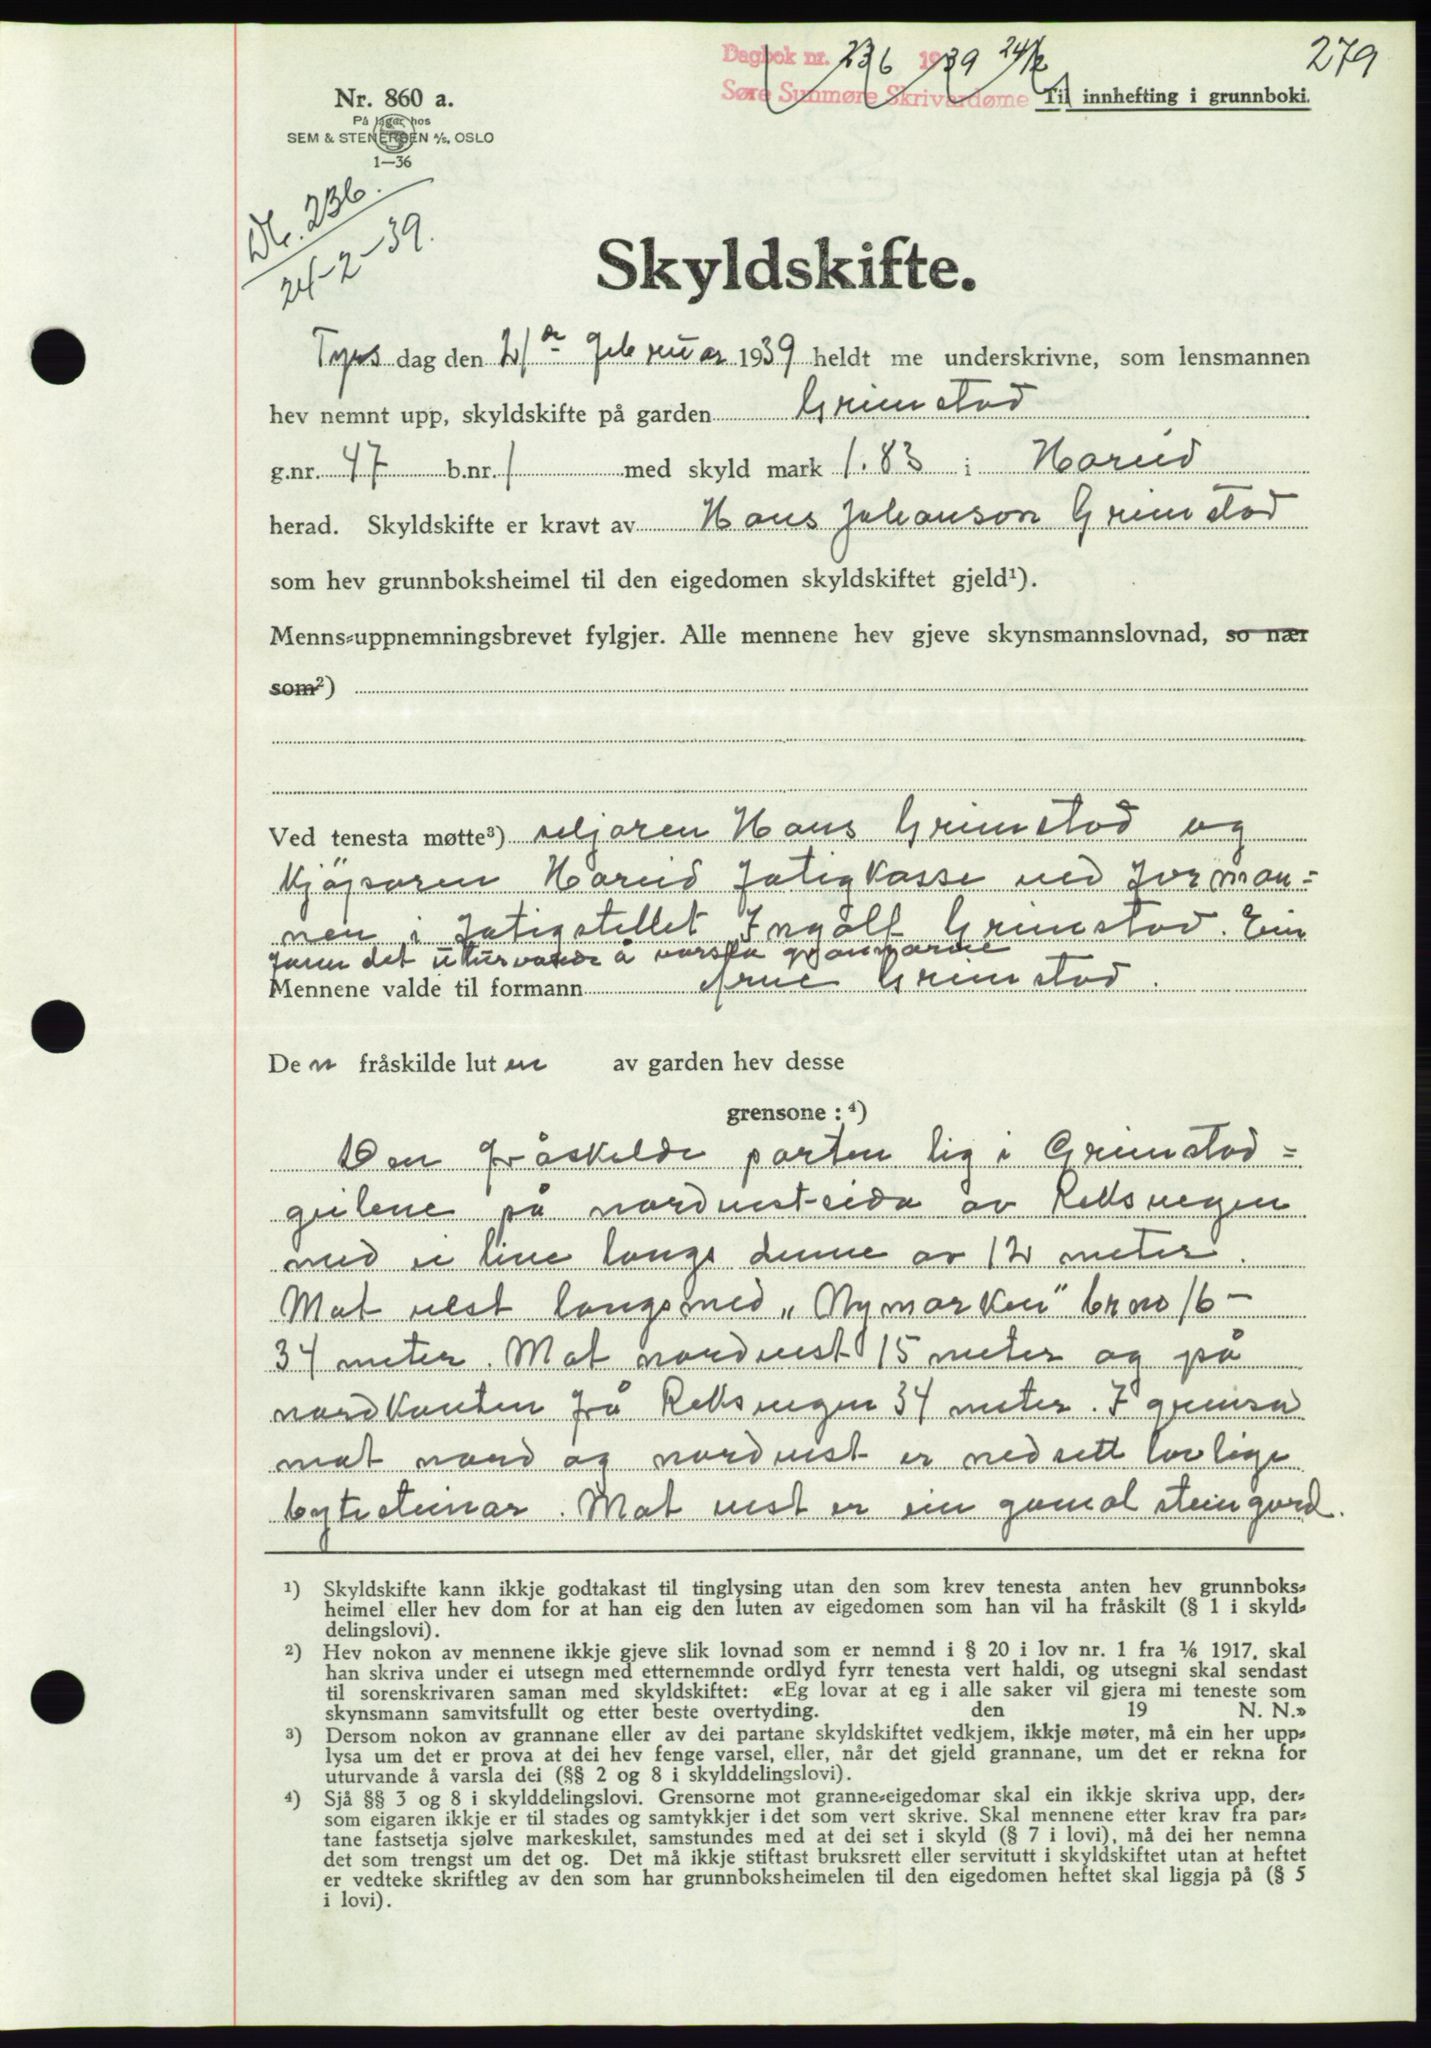 Dagbok nr. 236 1939 24/2
279
Søre Sunmøre Skrivardøme
Til innhefting i grunnboki.
Nr. 860 a.
På lager hos
SEM & STENERSEN A/S, OSLO
1—36
Nr. 236.
24-2-39.
Skyldskifte.
Tys dag den 21 de februar 1939 heldt me underskrivne, som lensmannen
hev nemnt upp, skyldskifte på garden Grimstad
g.nr. 47 b.nr. 1 med skyld mark 1.83 i Hareid
herad. Skyldskifte er kravt av Hans Johanson Grimstad
som hev grunnboksheimel til den eigedomen skyldskiftet gjeld¹).
Menns-uppnemningsbrevet fylgjer. Alle mennene hev gjeve skynsmannslovnad, so nær
som²)
Ved tenesta møtte³) seljaren Hans Grimstad og
kjöpsaren Hareid fatigkasse ved forman=
nen i fatigstellet Ingolf Grimstad. Ein
fann det uturvande å varsla grannarne
Mennene valde til formann Arne Grimstad.
De n fråskilde lut en av garden hev desse
grensone : ⁴)
Den fråskilde parten lig i Grimstad=
geilene på nordvest-sida av Reksvegen
med ei line langs denne av 12 meter.
Mot vest langsmed „Nymarken" br no 16 —
34 meter. Mot nordvest 15 meter og på
nordkanten frå Reksvegen 34 meter. I grensa
mot nord og nordvest er nedsett lovlige
bytesteinar. Mot vest er ein gamal steingard.
¹) Skyldskifte kann ikkje godtakast til tinglysing utan den som krev tenesta anten hev grunnboks-
heimel eller hev dom for at han eig den luten av eigedomen som han vil ha fråskilt (§ 1 i skyld-
delingslovi).
²) Hev nokon av mennene ikkje gjeve slik lovnad som er nemnd i § 20 i lov nr. 1 fra ⅙ 1917, skal
han skriva under ei utsegn med etternemnde ordlyd fyrr tenesta vert haldi, og utsegni skal sendast
til sorenskrivaren saman med skyldskiftet: «Eg lovar at eg i alle saker vil gjera mi teneste som
skynsmann samvitsfullt og etter beste overtyding. den 19 N. N.»
³) Dersom nokon av grannane eller av dei partane skyldskiftet vedkjem, ikkje møter, må ein her upp-
lysa um det er prova at dei hev fenge varsel, eller, når det gjeld grannane, um det er rekna for
uturvande å varsla dei (§§ 2 og 8 i skylddelingslovi).
⁴) Sjå §§ 3 og 8 i skylddelingslovi. Grensorne mot granne-eigedomar skal ein ikkje skriva upp, der-
som eigaren ikkje er til stades og samtykkjer i det som vert skrive. Skal mennene etter krav fra par-
tane fastsetja sjølve markeskilet, samstundes med at dei set i skyld (§ 7 i lovi), må dei her nemna
det som trengst um det og. Det må ikkje stiftast bruksrett eller servitutt i skyldskiftet utan at heftet
er vedteke skriftleg av den som har grunnboksheimelen til den eigedomen heftet skal liggja på (§ 5
i lovi).